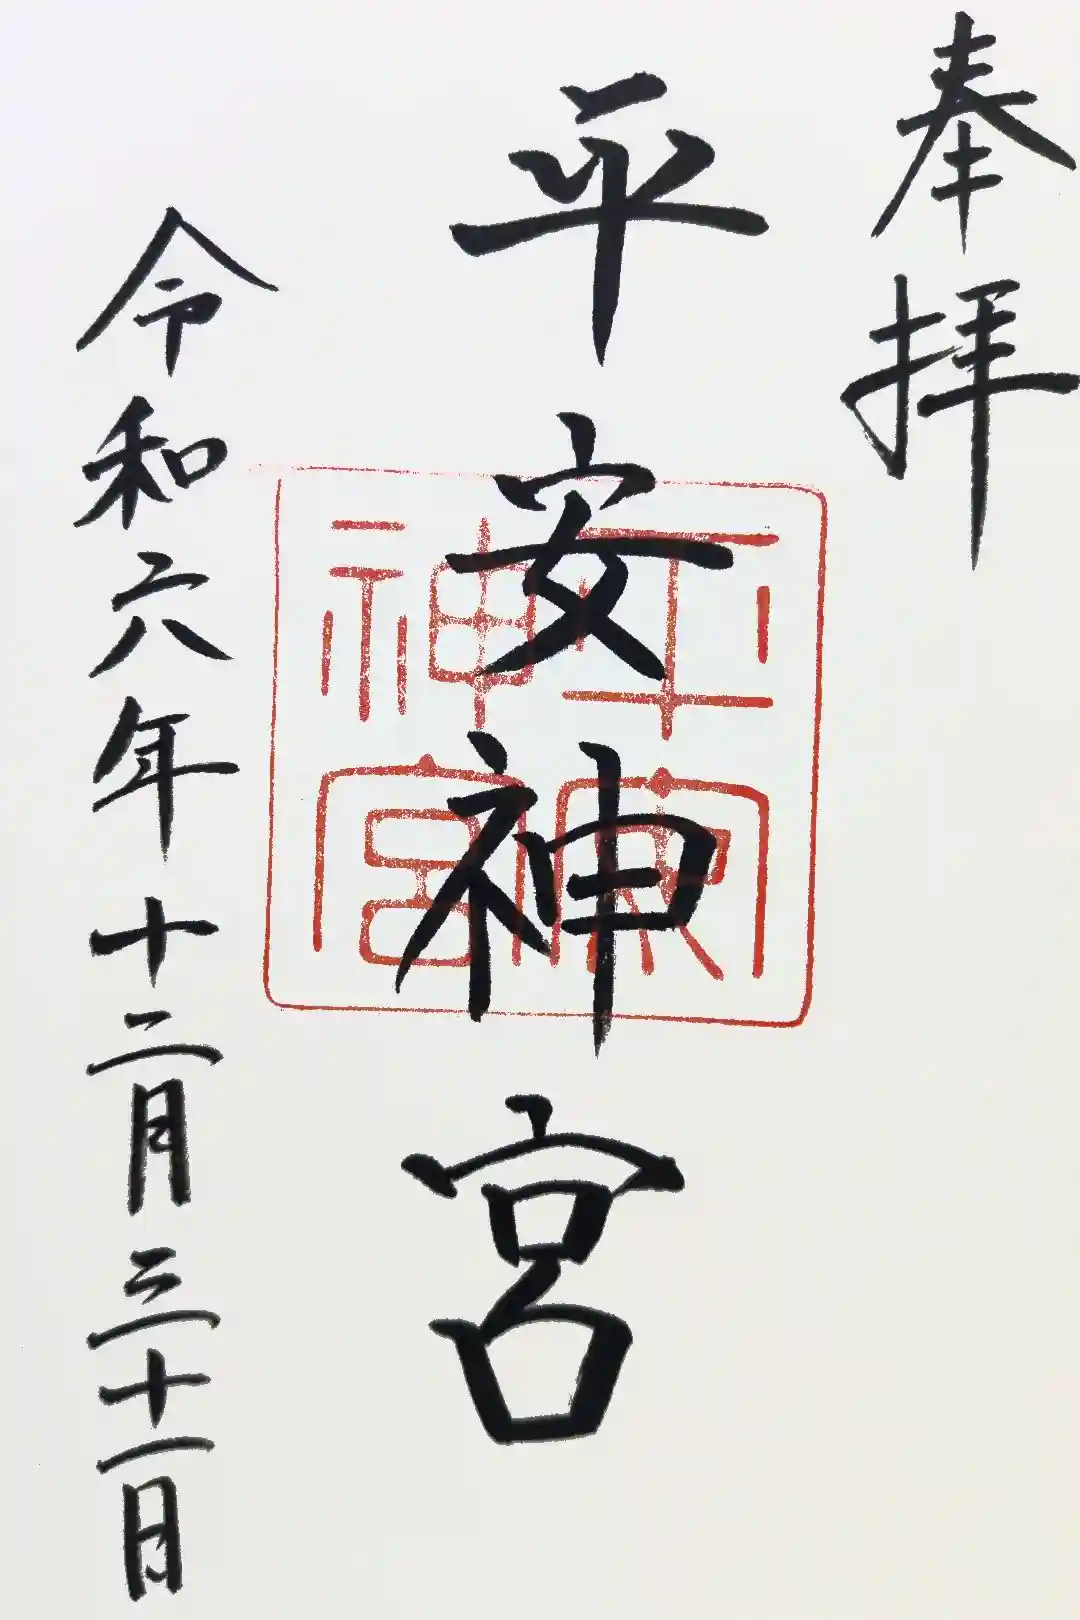 奉拝
平安神宮
令和六年十二月三十一日